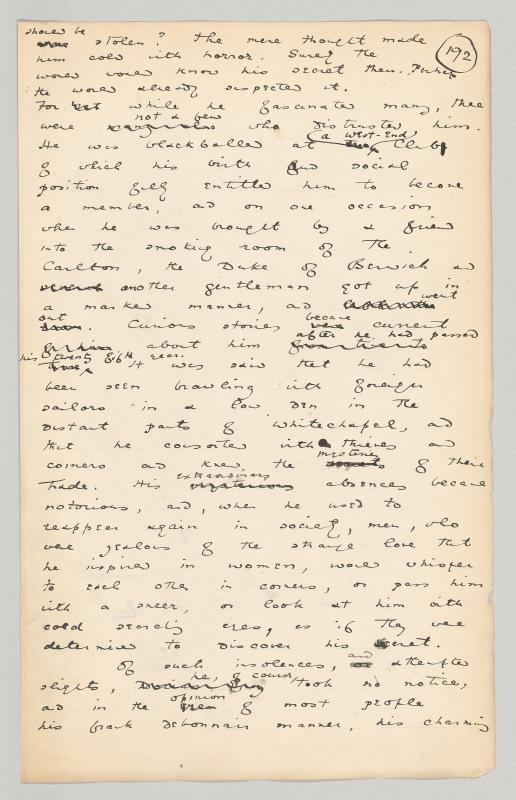 should be
192
was stolen? The mere thought made
him cold with horror. Surely the
world would know his secret then. Perhaps
the world already suspected it.
For while he fascinated many, there
not a few
were who distrusted him.
a West-End
He was blackballed at Club
of which his birth and social
position fully entitled him to become
a member, and on one occasion
when he was brought by a friend
into the smoking room of the
Carlton, the Duke of Berwick and
another gentleman got up in
a marked manner, and went
out
became
Curious stories were current
after he had passed
about him
his twenty fifth year.
It was said that he had
been seen brawling with foreign
sailors in a low den in the
distant parts of Whitechapel, and
that he consorted with thieves and
coiners and knew the mysteries of their
extraordinary
trade. His mysterious absences became
notorious, and, when he used to
reappear again in society, men, who
were jealous of the strange love that
he inspired in women, would whisper
to each other in corners, or pass him
with a sneer, or look at him with
cold searching eyes, as if they were
determined to discover his secret.
and
Of such insolences, or attempted
he, of course
slights, took no notice,
opinion
and in the of most people
his frank debonnair manner, his charming